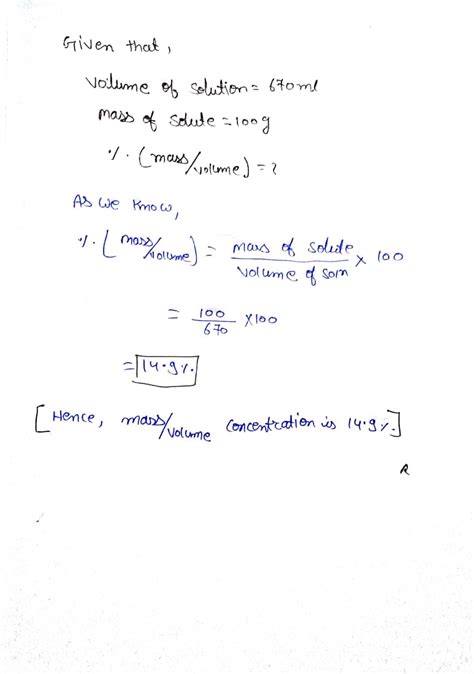 Given that,
Voilume of solution = 670ml
mass of solute = 100g
%. (mass/volume) = ?
As we know,
%. (mass/volume) = mass of solute / volume of soln × 100
= 100/670 × 100
= 14.9%.
[Hence, mass/volume concentration is 14.9%.]
R